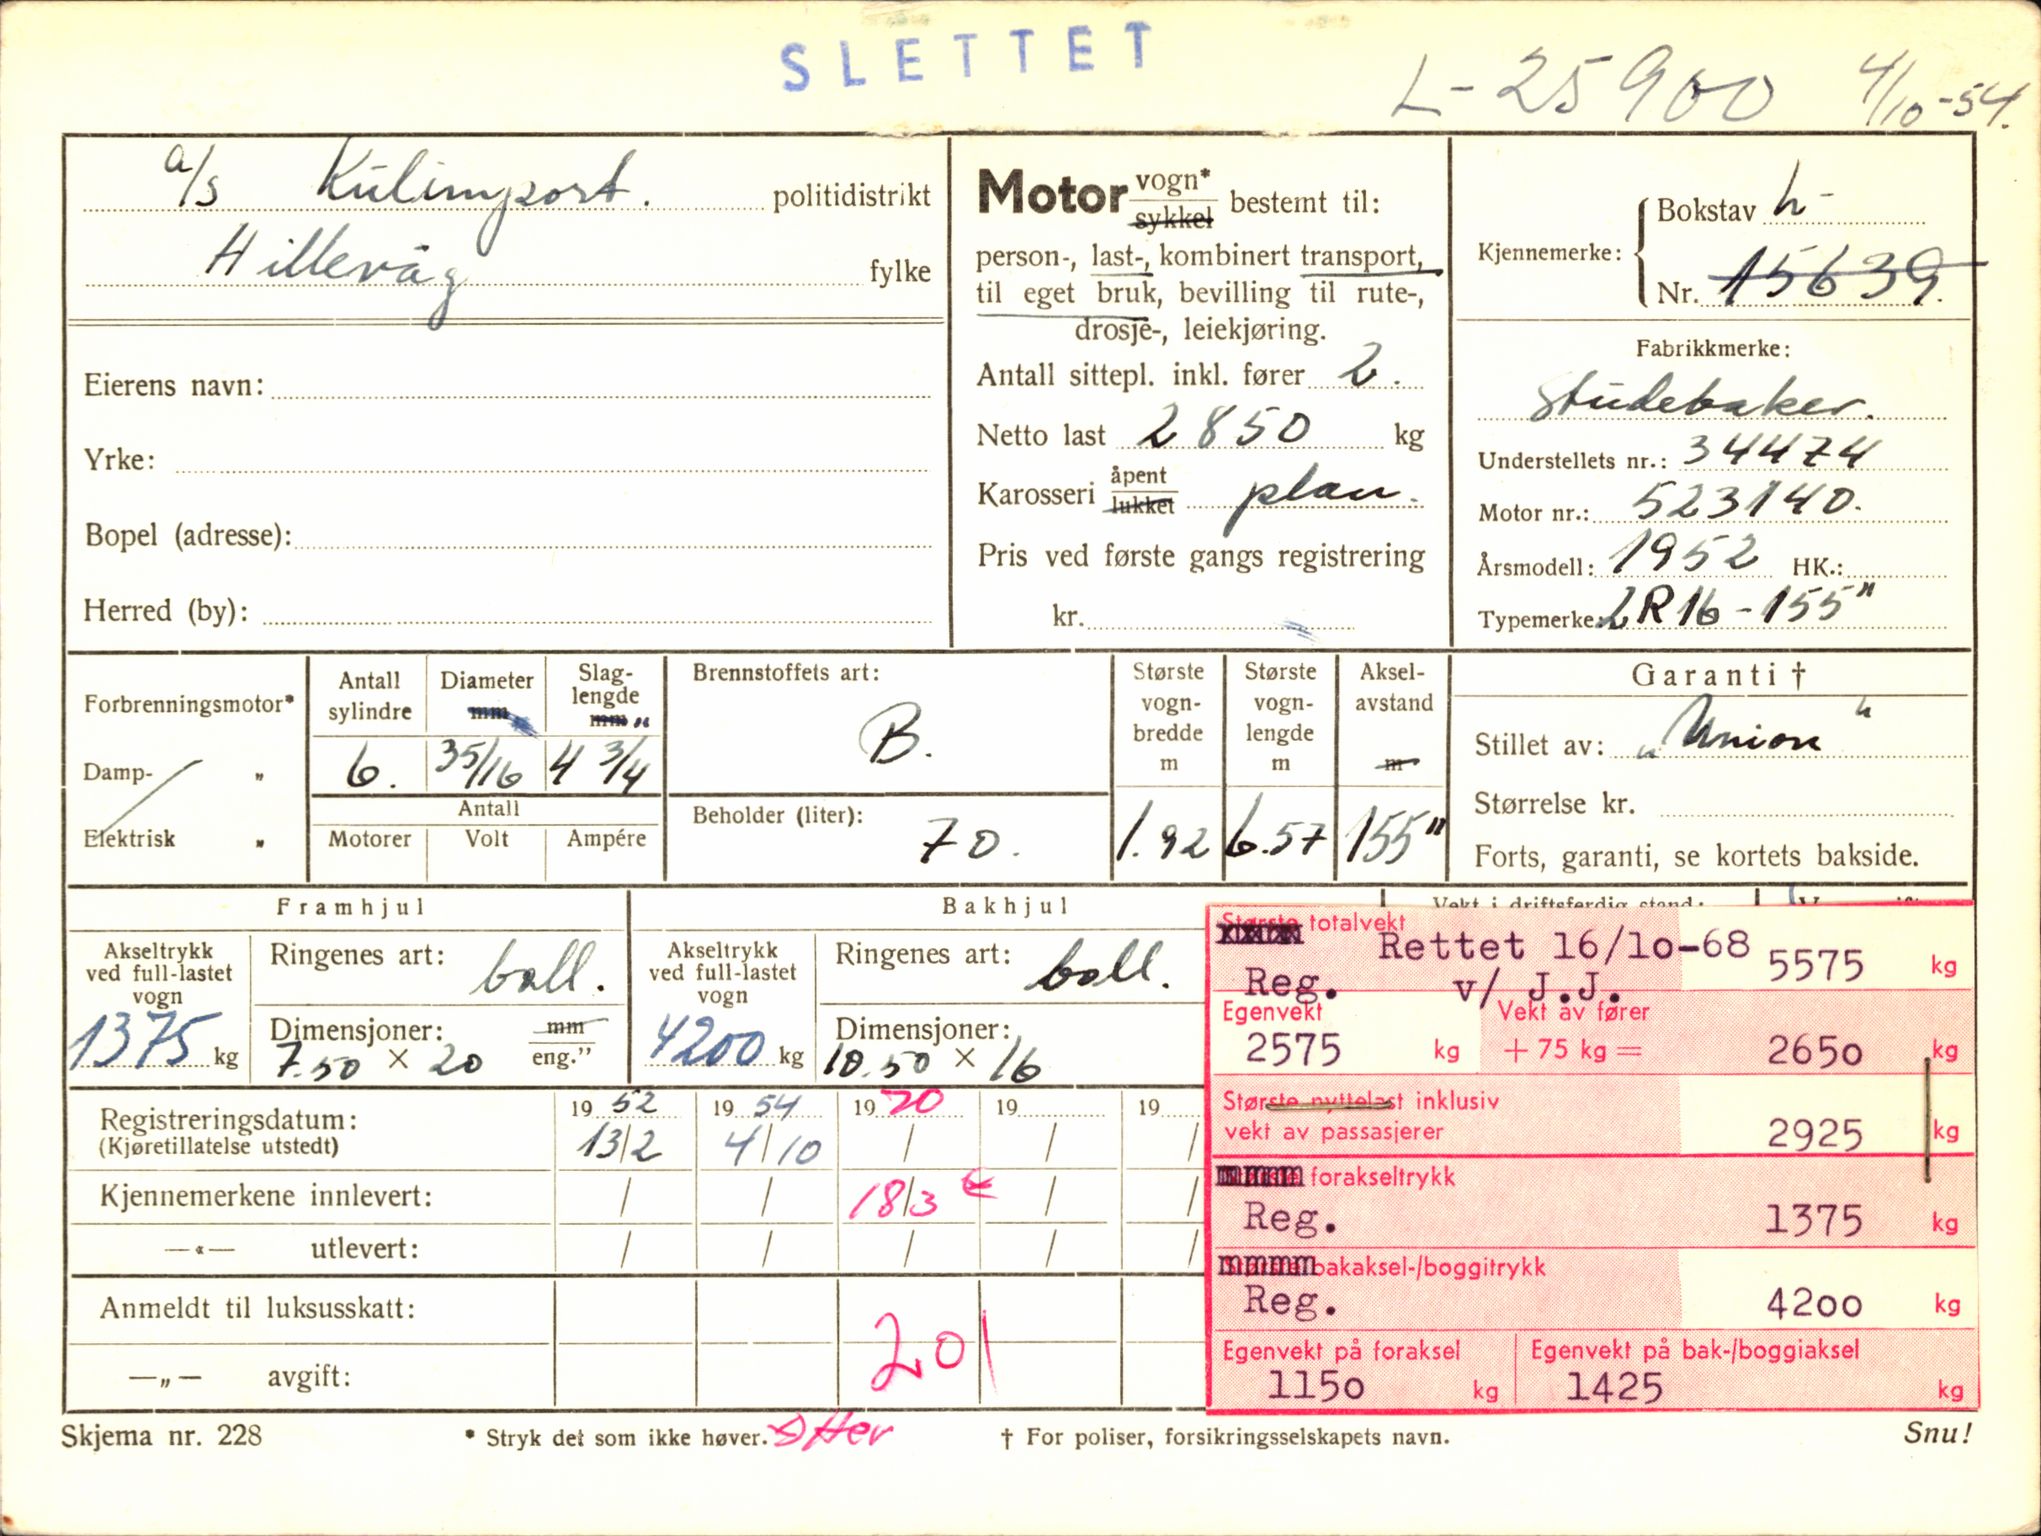 SLETTET
L-25900 4/10-54.
a/s Kulimport. politidistrikt
Hillevåg fylke
Eierens navn:
Yrke:
Bopel (adresse):
Herred (by):
Motor vogn* sykkel bestemt til:
person-, last-, kombinert transport,
til eget bruk, bevilling til rute-,
drosje-, leiekjøring.
Antall sittepl. inkl. fører 2.
Netto last 2850 kg
Karosseri åpent lukket plan.
Pris ved første gangs registrering
kr.
Kjennemerke: Bokstav L-
Nr. 15639.
Fabrikkmerke:
Studebaker.
Understellets nr.: 34474
Motor nr.: 523140.
Årsmodell: 1952 HK.:
Typemerke: 2R16-155"
Forbrenningsmotor*
Damp- "
Elektrisk "
Antall sylindre
6.
Diameter mm
3 5/16
Slaglengde mm "
4 3/4
Antall
Motorer Volt Ampére
Brennstoffets art:
B.
Beholder (liter):
70.
Største vognbredde m
1.92
Største vognlengde m
6.57
Akselavstand m
155"
Garanti †
Stillet av: „Union"
Størrelse kr.
Forts, garanti, se kortets bakside.
Framhjul
Akseltrykk
ved full-lastet
vogn
1375 kg
Ringenes art: ball.
Dimensjoner: mm
7.50 × 20 eng."
Bakhjul
Akseltrykk
ved full-lastet
vogn
4200 kg
Ringenes art: ball.
Dimensjoner:
10.50 × 16
Vekt i driftsferdig stand:
Største totalvekt
Rettet 16/10-68 5575 kg
Reg. v/ J.J.
Egenvekt Vekt av fører
2575 kg + 75 kg = 2650 kg
Største nyttelast inklusiv
vekt av passasjerer 2925 kg
forakseltrykk
Reg. 1375 kg
bakaksel-/boggitrykk
Reg. 4200 kg
Egenvekt på foraksel Egenvekt på bak-/boggiaksel
1150 kg 1425 kg
Registreringsdatum: 1952 1954 1970 19 19
(Kjøretillatelse utstedt) 13/2 4/10 / / /
Kjennemerkene innlevert: / / 18/3 / /
—«— utlevert: / / / / /
Anmeldt til luksusskatt:
201
—„— avgift:
Skjema nr. 228 * Stryk det som ikke høver. † For poliser, forsikringsselskapets navn. Snu!